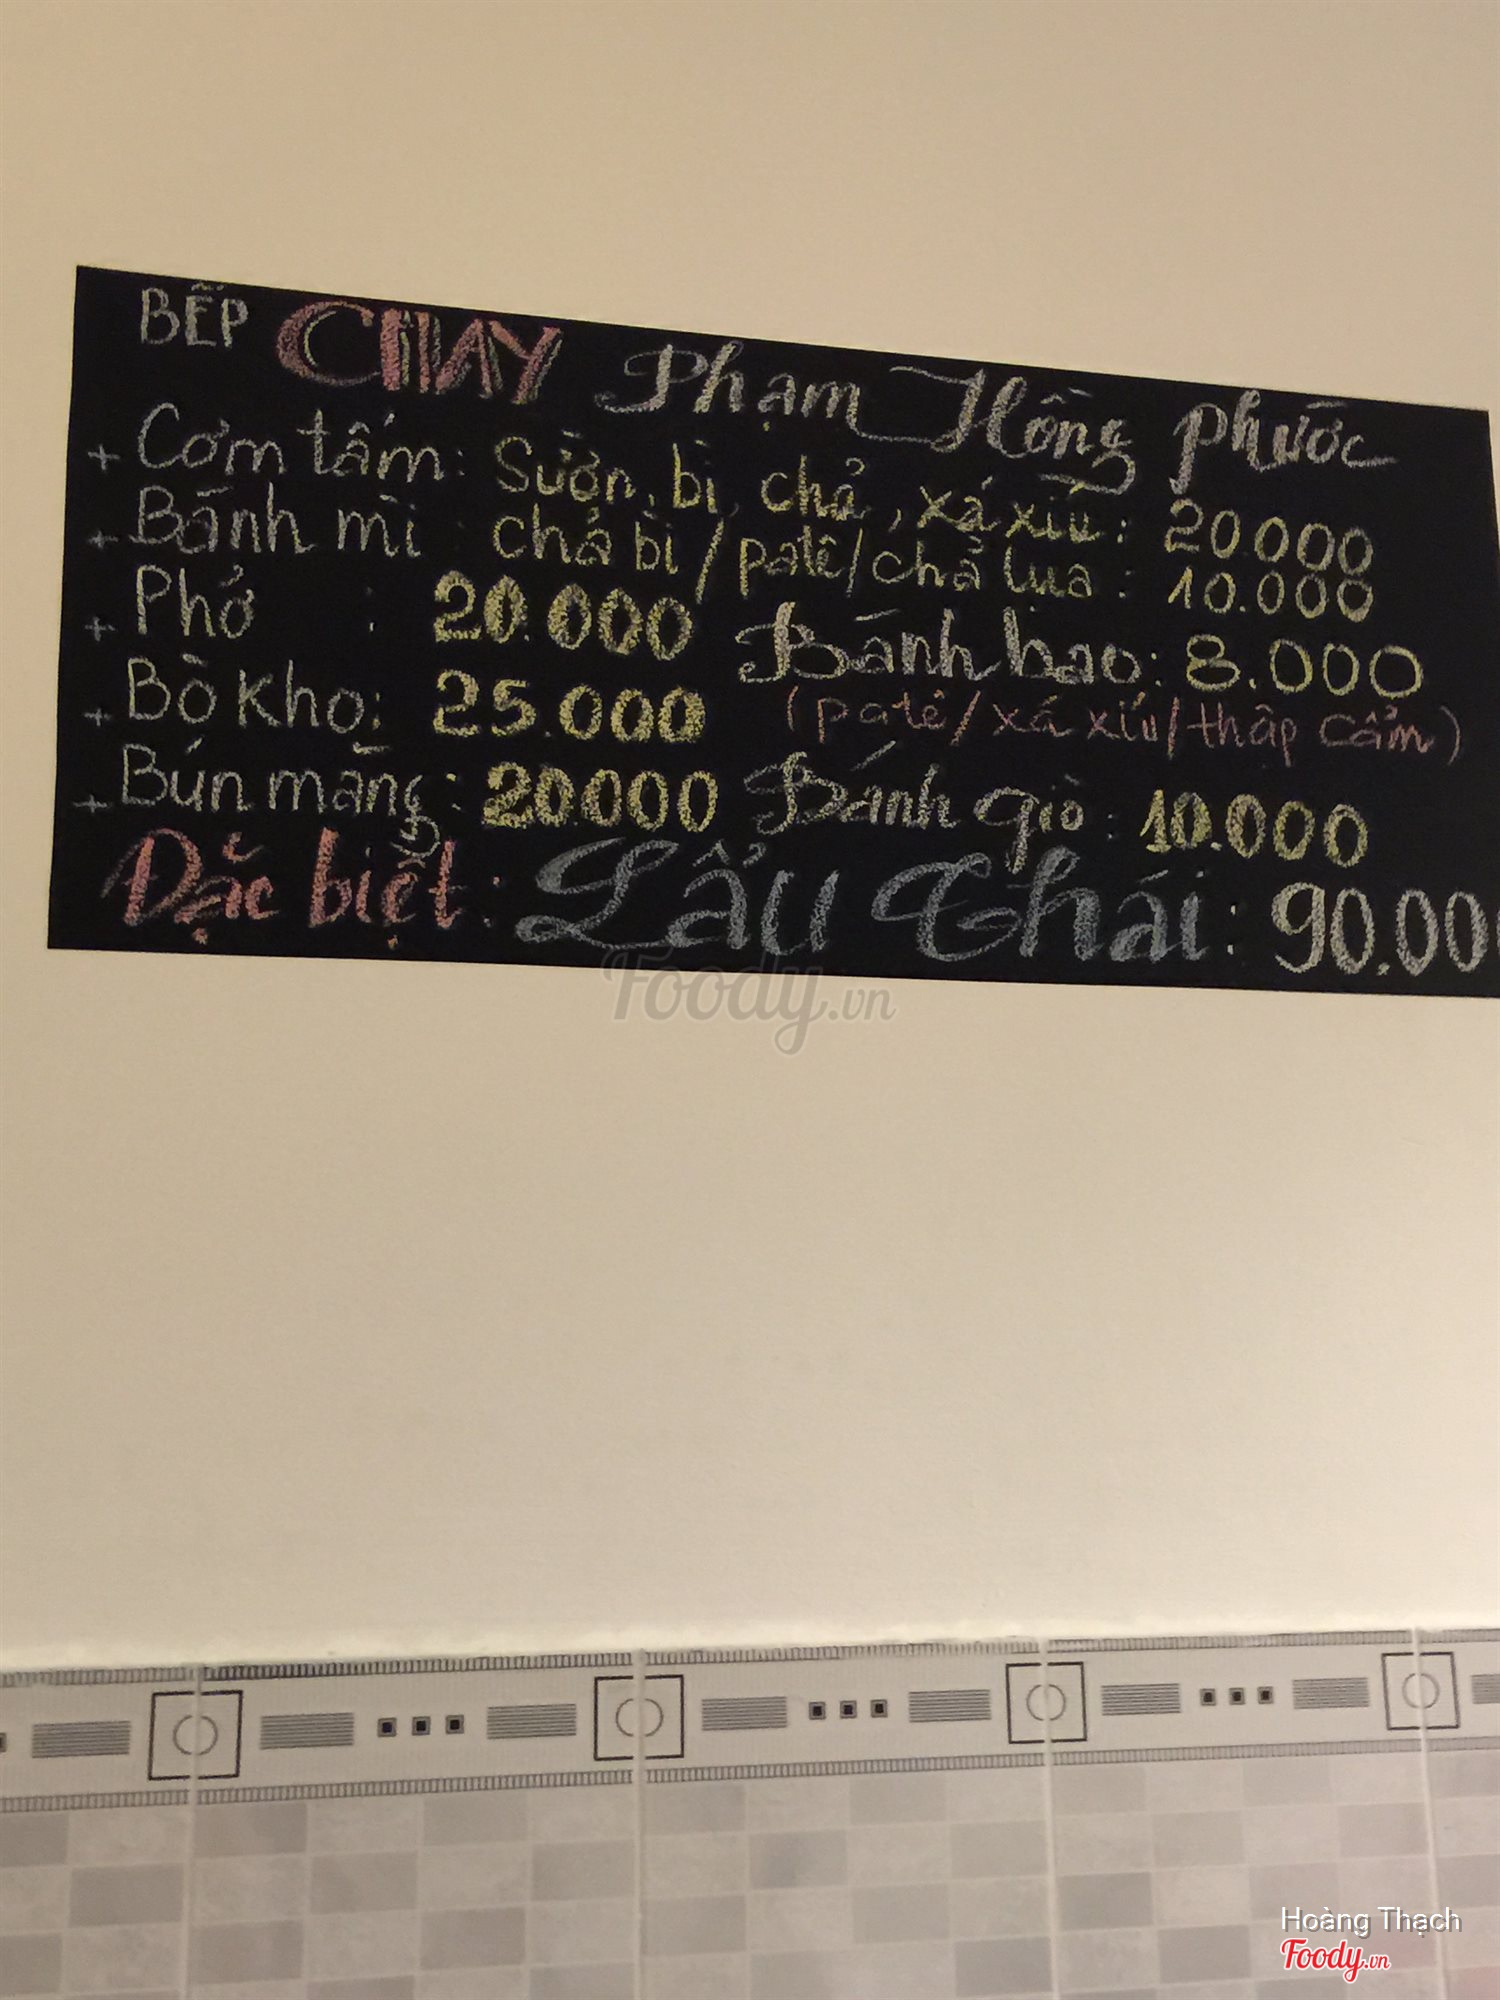 BẾP CHAY Phạm Hồng Phước
+ Cơm tấm: Sườn, bì, chả, xá xíu: 20.000
+ Bánh mì : chả bì / patê / chả lụa : 10.000
+ Phở : 20.000 Bánh bao: 8.000
+ Bò kho: 25.000 (patê / xá xíu / thập cẩm)
+ Bún măng: 20.000 Bánh giò : 10.000
Đặc biệt: Lẩu Thái: 90.00
Foody.vn
Hoàng Thạch
Foody.vn